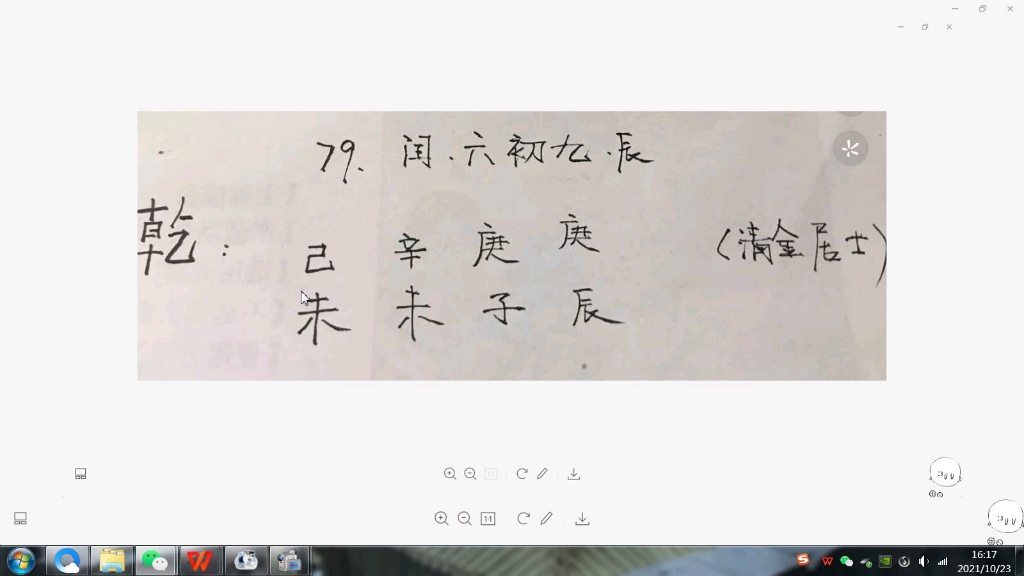 79. 闰.六初九.辰
乾: 己 辛 庚 庚 (清金居士)
未 未 子 辰
11
16:17
2021/10/23